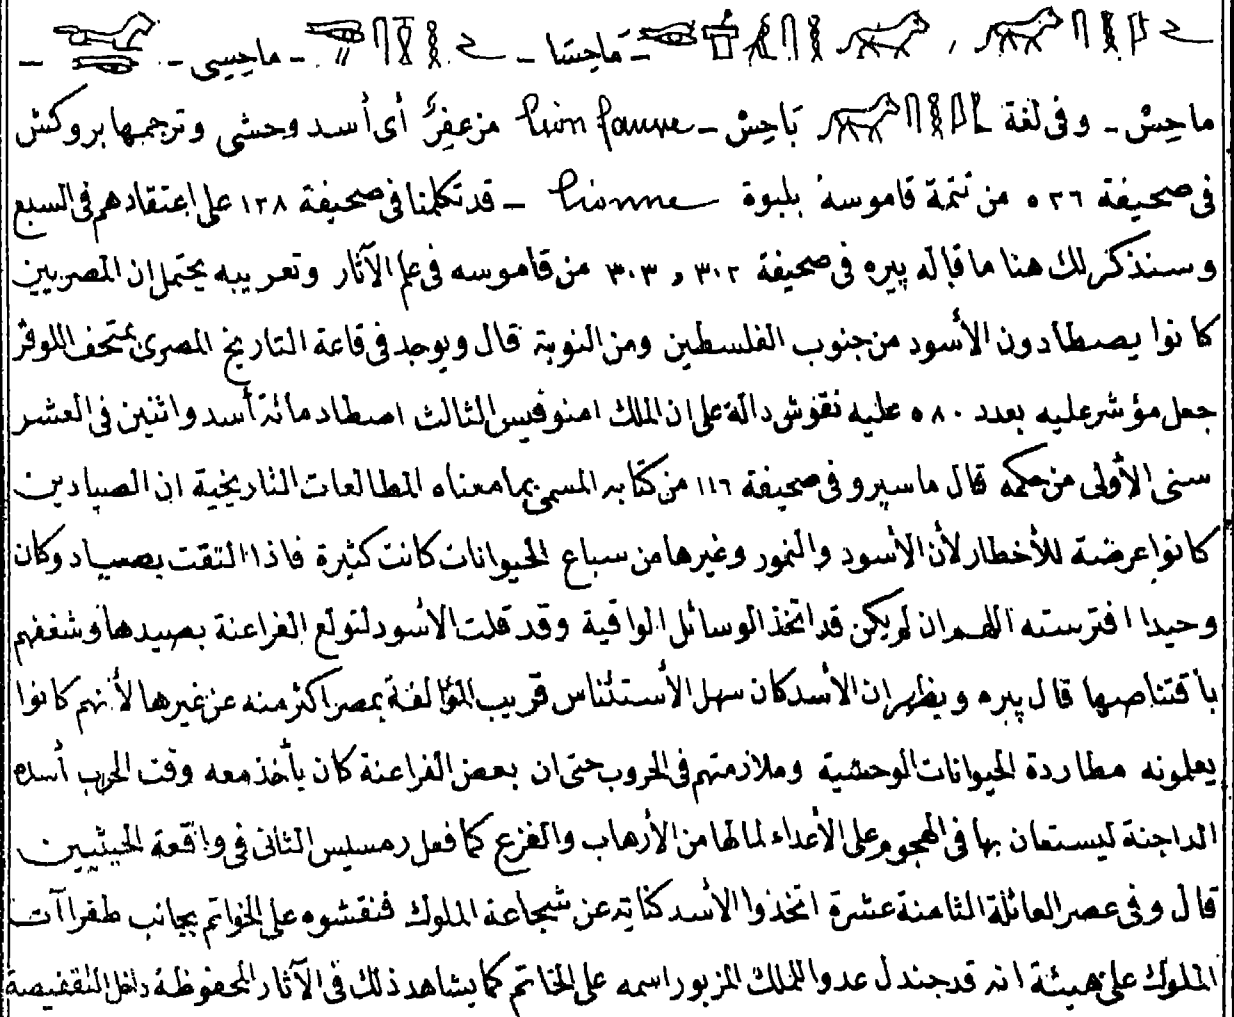 - مَاحِسَا - ماحِسِى -
ماحِسْ - وفى لغة بَاحِسْ - lion fauve مزعفِرٌ أى أسد وحشى وترجمها بروكش
فى صحيفة ٥٣٦ من تتمة قاموسه بلبوة lionne - قد تكلمنا فى صحيفة ١٣٨ على اعتقادهم فى السبع
وسنذكر لك هنا ما قاله پيره فى صحيفة ٣٠٢ و ٣٠٣ من قاموسه فى علم الآثار وتعريبه يحتمل ان المصريين
كانوا يصطادون الأسود من جنوب الفلسطين ومن النوبة قال ويوجد فى قاعة التاريخ المصرى بمتحف اللوڤر
جعل مؤشر عليه بعدد ٥٨٠ عليه نقوش دالة على ان الملك امنوفيس الثالث اصطاد مائة أسد واثنين فى العشر
سنى الأولى من حكمه قال ماسپرو فى صحيفة ١١٦ من كتابه المسمى بما معناه المطالعات التاريخية ان الصيادين
كانوا عرضة للأخطار لأن الأسود والنمور وغيرها من سباع الحيوانات كانت كثيرة فاذا التقت بصياد وكان
وحيدا افترسته اللهم ان لم يكن قد اتخذ الوسائل الواقية وقد قلت الأسود لتولع الفراعنة بصيدها وشغفهم
باقتناصها قال پيره ويظهر ان الأسد كان سهل الأستئناس قريب المؤالفة بمصر اكثر منه عن غيرها لأنهم كانوا
يعلمونه مطاردة الحيوانات الوحشية وملازمتهم فى الحروب حتى ان بعض الفراعنة كان يأخذ معه وقت الحرب أسده
الداجنة ليستعان بها فى الهجوم على الأعداء لمالها من الأرهاب والفزع كما فعل رمسيس الثانى فى واقعة الحيثيين
قال وفى عصر العائلة الثامنة عشرة اتخذوا الأسد كناية عن شجاعة الملوك فنقشوه على الخواتم بجانب طغراآت
الملوك على هيئة انه قد جندل عدو الملك المزبور اسمه على الخاتم كما يشاهد ذلك فى الآثار المحفوظة داخل التقفيصة